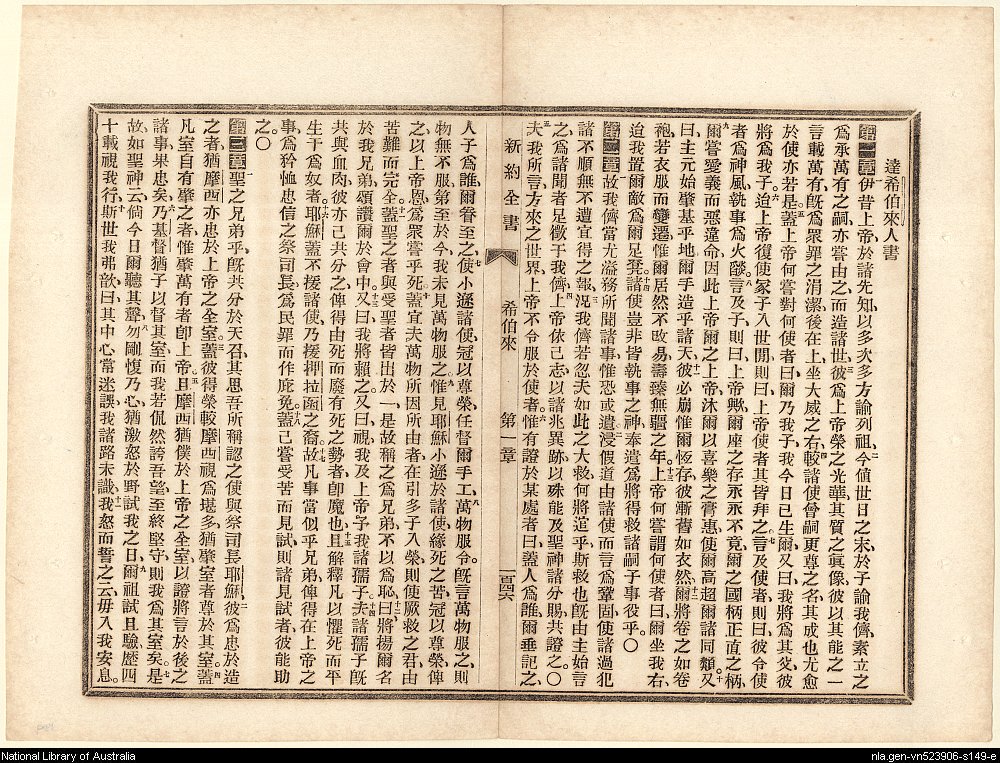 達希伯來人書
第一章伊昔上帝於諸先知以多次多方諭列祖今値世日之末於子諭我儕素立之
爲承萬有之嗣亦嘗由之而造諸世彼爲上帝榮之光華其質之眞像彼以其能之一
言載萬有旣爲衆罪之涓潔後在上坐大威之右較諸使曾嗣更尊之名其成也尤愈
於使亦若是蓋上帝何嘗對何使者曰爾乃我子我今日已生爾又曰我將爲其父彼
將爲我子迨上帝復使冢子入世間則曰上帝使者其皆拜之言及使者則曰彼令使
者爲神風執事爲火燄言及子則曰上帝歟爾座之存永永不竟爾之國柄正直之柄
爾嘗愛義而惡違命因此上帝爾之上帝沐爾以喜樂之膏惠使爾高超爾諸同類又
曰主元始肇基乎地爾手造乎諸天彼必崩惟爾恆存彼漸舊如衣然爾將卷之如卷
袍若衣服而變遷惟爾居然不改易壽臻無疆之年上帝何嘗謂何使者曰爾坐我右
迨我置爾敵爲爾足凳諸使豈非皆執事之神奉遣爲將得救諸嗣子事役乎
第二章故我儕當尤謚務所聞諸事惟恐或遺浸假道由諸使而言爲鞏固使諸過犯
諸不順無不遭宜得之報況我儕若忽夫如此之大救何將逭乎斯救也旣由主始言
之爲諸聞者足徵于我儕上帝依己志以諸兆異跡以殊能及聖神諸分賜共證之
夫我所言方來之世界上帝不令服於使者惟有證於某處者曰蓋人爲誰爾垂記之
新約全書
希伯來
第一章
一百四六
人子爲誰爾眷至之使小遜諸使冠以尊榮任督爾手工萬物服令旣言萬物服之則
物無不服第至於今我未見萬物服之惟見耶穌小遜於諸使緣死之苦冠以尊榮俾
之以上帝恩爲衆嘗乎死蓋宜夫萬物所因所由者在引多子入榮則使厥救之君由
苦難而完全蓋聖之者與受聖者皆出於一是故稱之爲兄弟不以爲恥曰將揚爾名
於我兄弟頌讚爾於會中又曰我將賴之又曰視我及上帝予我諸孺子夫諸孺子旣
共與血肉彼亦己共分之俾得由死而廢有死之勢者卽魔也且解釋凡以懼死而平
生于爲奴者耶穌蓋不援諸使乃援押拉函之裔故凡事當似乎兄弟俾得在上帝之
事爲矜恤忠信之祭司長爲民罪而作庇免蓋己嘗受苦而見試則諸見試者彼能助
之
第三章聖之兄弟乎旣共分於天召其思吾所稱認之使與祭司長耶穌彼爲忠於造
之者猶摩西亦忠於上帝之全室蓋彼得榮較摩西視爲堪多猶肇室者尊於其室蓋
凡室自有肇之者惟肇萬有者卽上帝且摩西猶僕於上帝之全室以證將言於後之
諸事果忠矣乃基督猶子以督其室而我若侃然誇吾望至終堅守則我爲其室矣是
故如聖神云倘今日爾聽其聲勿剛愎乃心猶激怒於野試我之日爾祖試且驗歷四
十載視我行斯世我弗歆曰其中心常迷誤我諸路未識我怒而誓之云毋入我安息
National Library of Australia
nla.gen-vn523906-s149-e